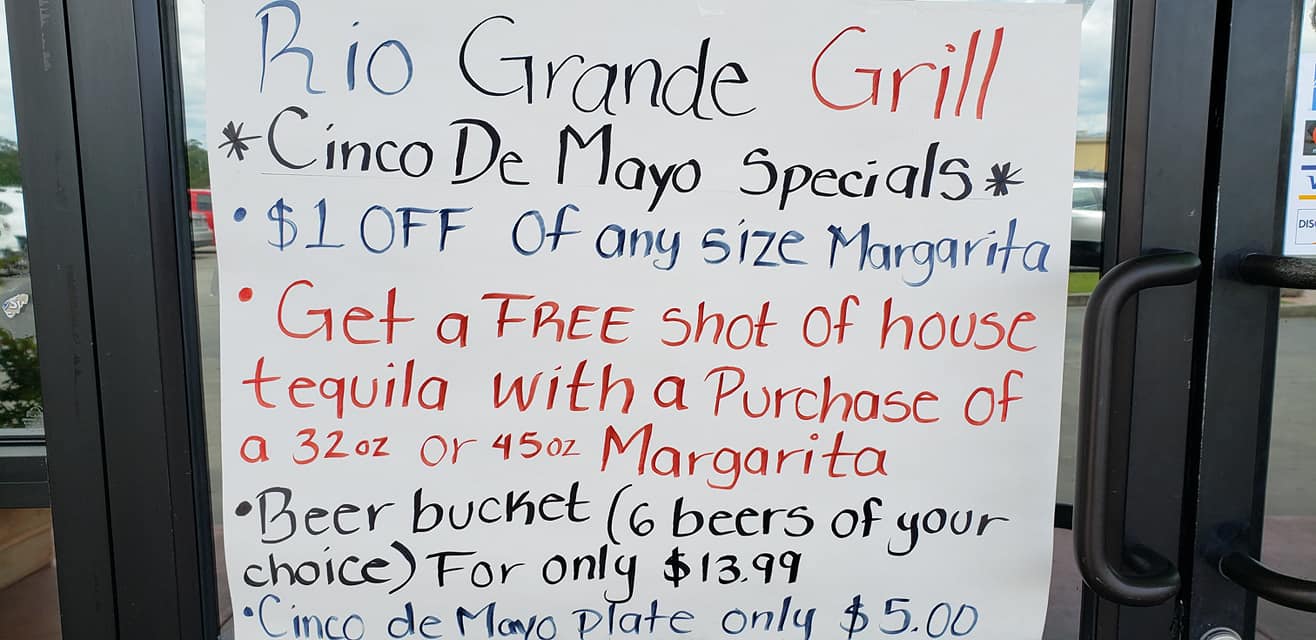 Rio Grande Grill
*Cinco De Mayo Specials*
• $1 OFF Of any size Margarita
• Get a FREE shot of house
tequila with a Purchase of
a 32oz or 45oz Margarita
• Beer bucket (6 beers of your
choice) For only $13.99
• Cinco de Mayo Plate only $5.00